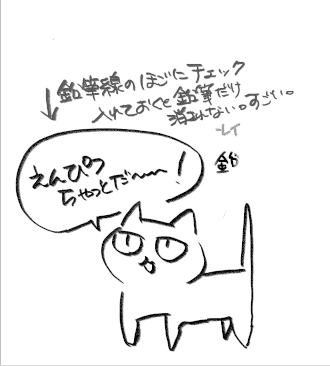 ↓鉛筆線のほごにチェック
入れておくと鉛筆だけ
消えれない。すごい。
レイ
鉛
えんぴつ
ちゃっとだ〜〜!